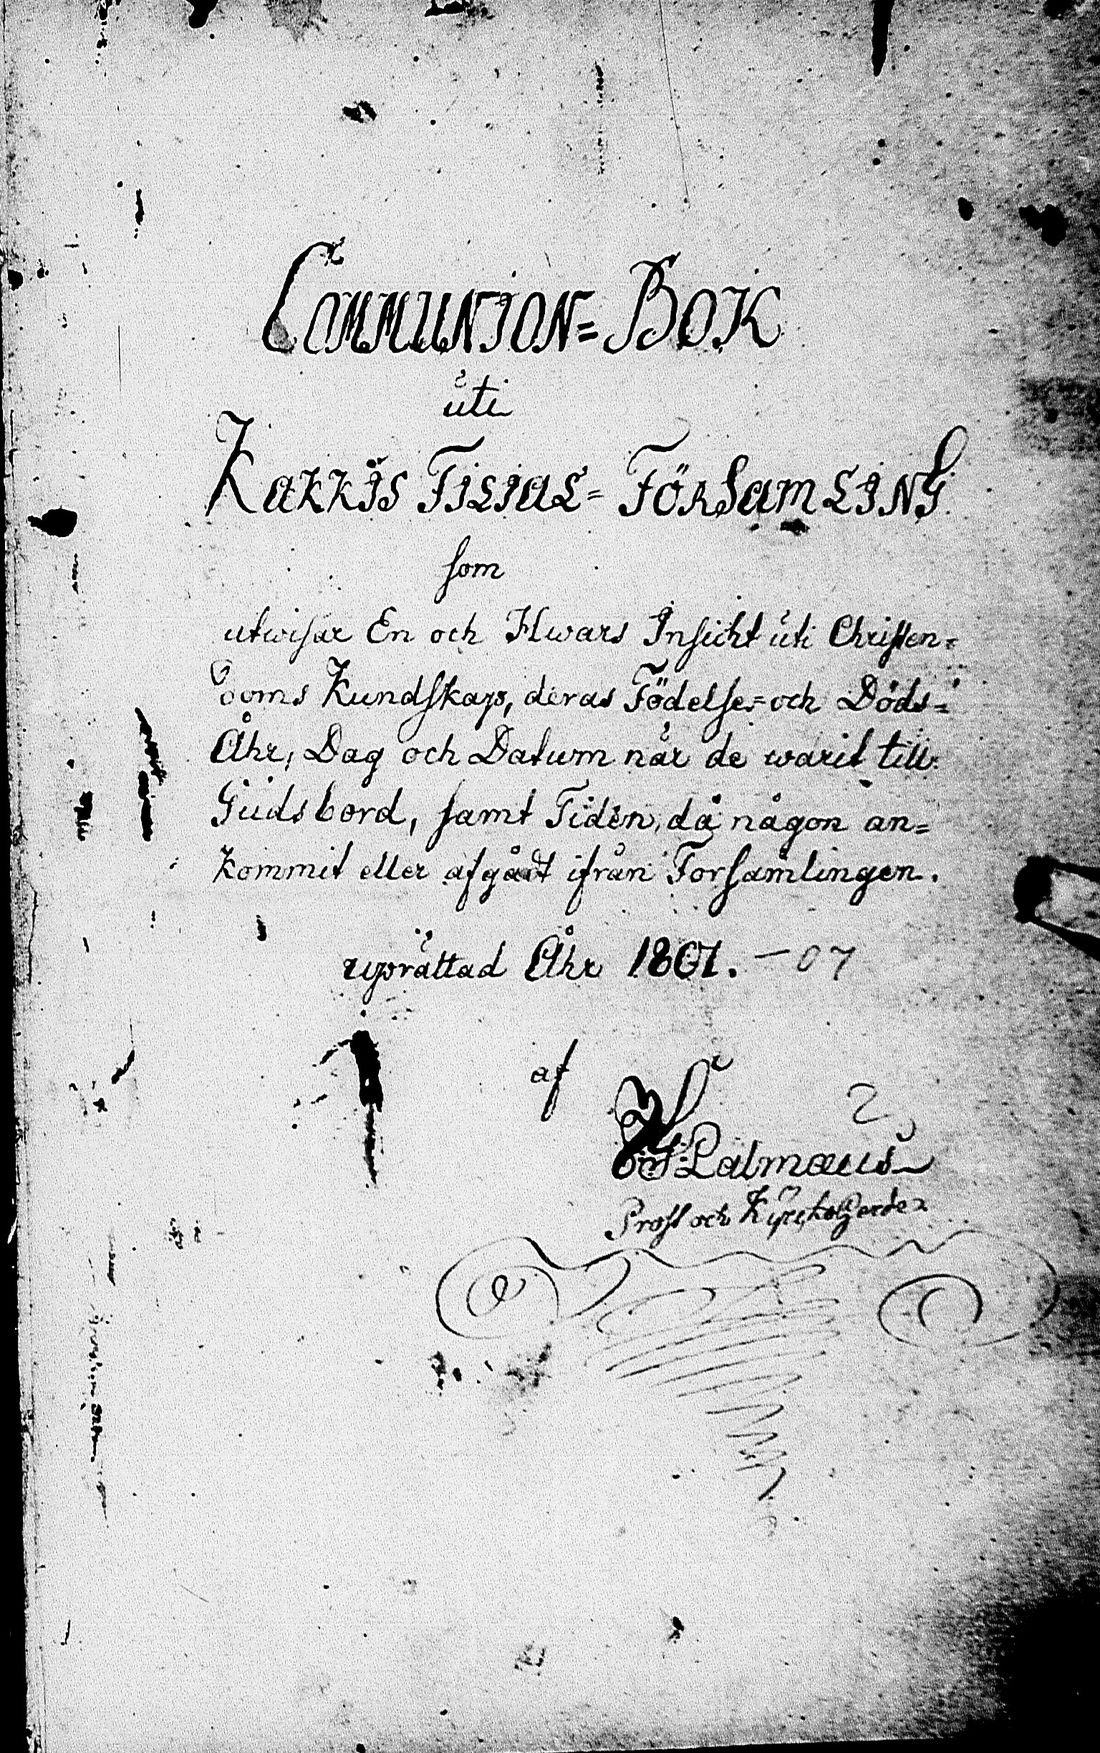 COMMUNION=BOK
uti
KAKKIS FILIAL=FÖRSAMLING
som
utwisar En och Hwars Insicht uti Christen=
doms Kundskap, deras Födelse=och Döds=
Åhr, Dag och Datum när de warit till
Gudsbord, samt Tiden, då någon an=
kommit eller afgådt ifrån Församlingen.
upprättad Åhr 1801. —07
af
Palmæus
Prost och Kyrckoherde